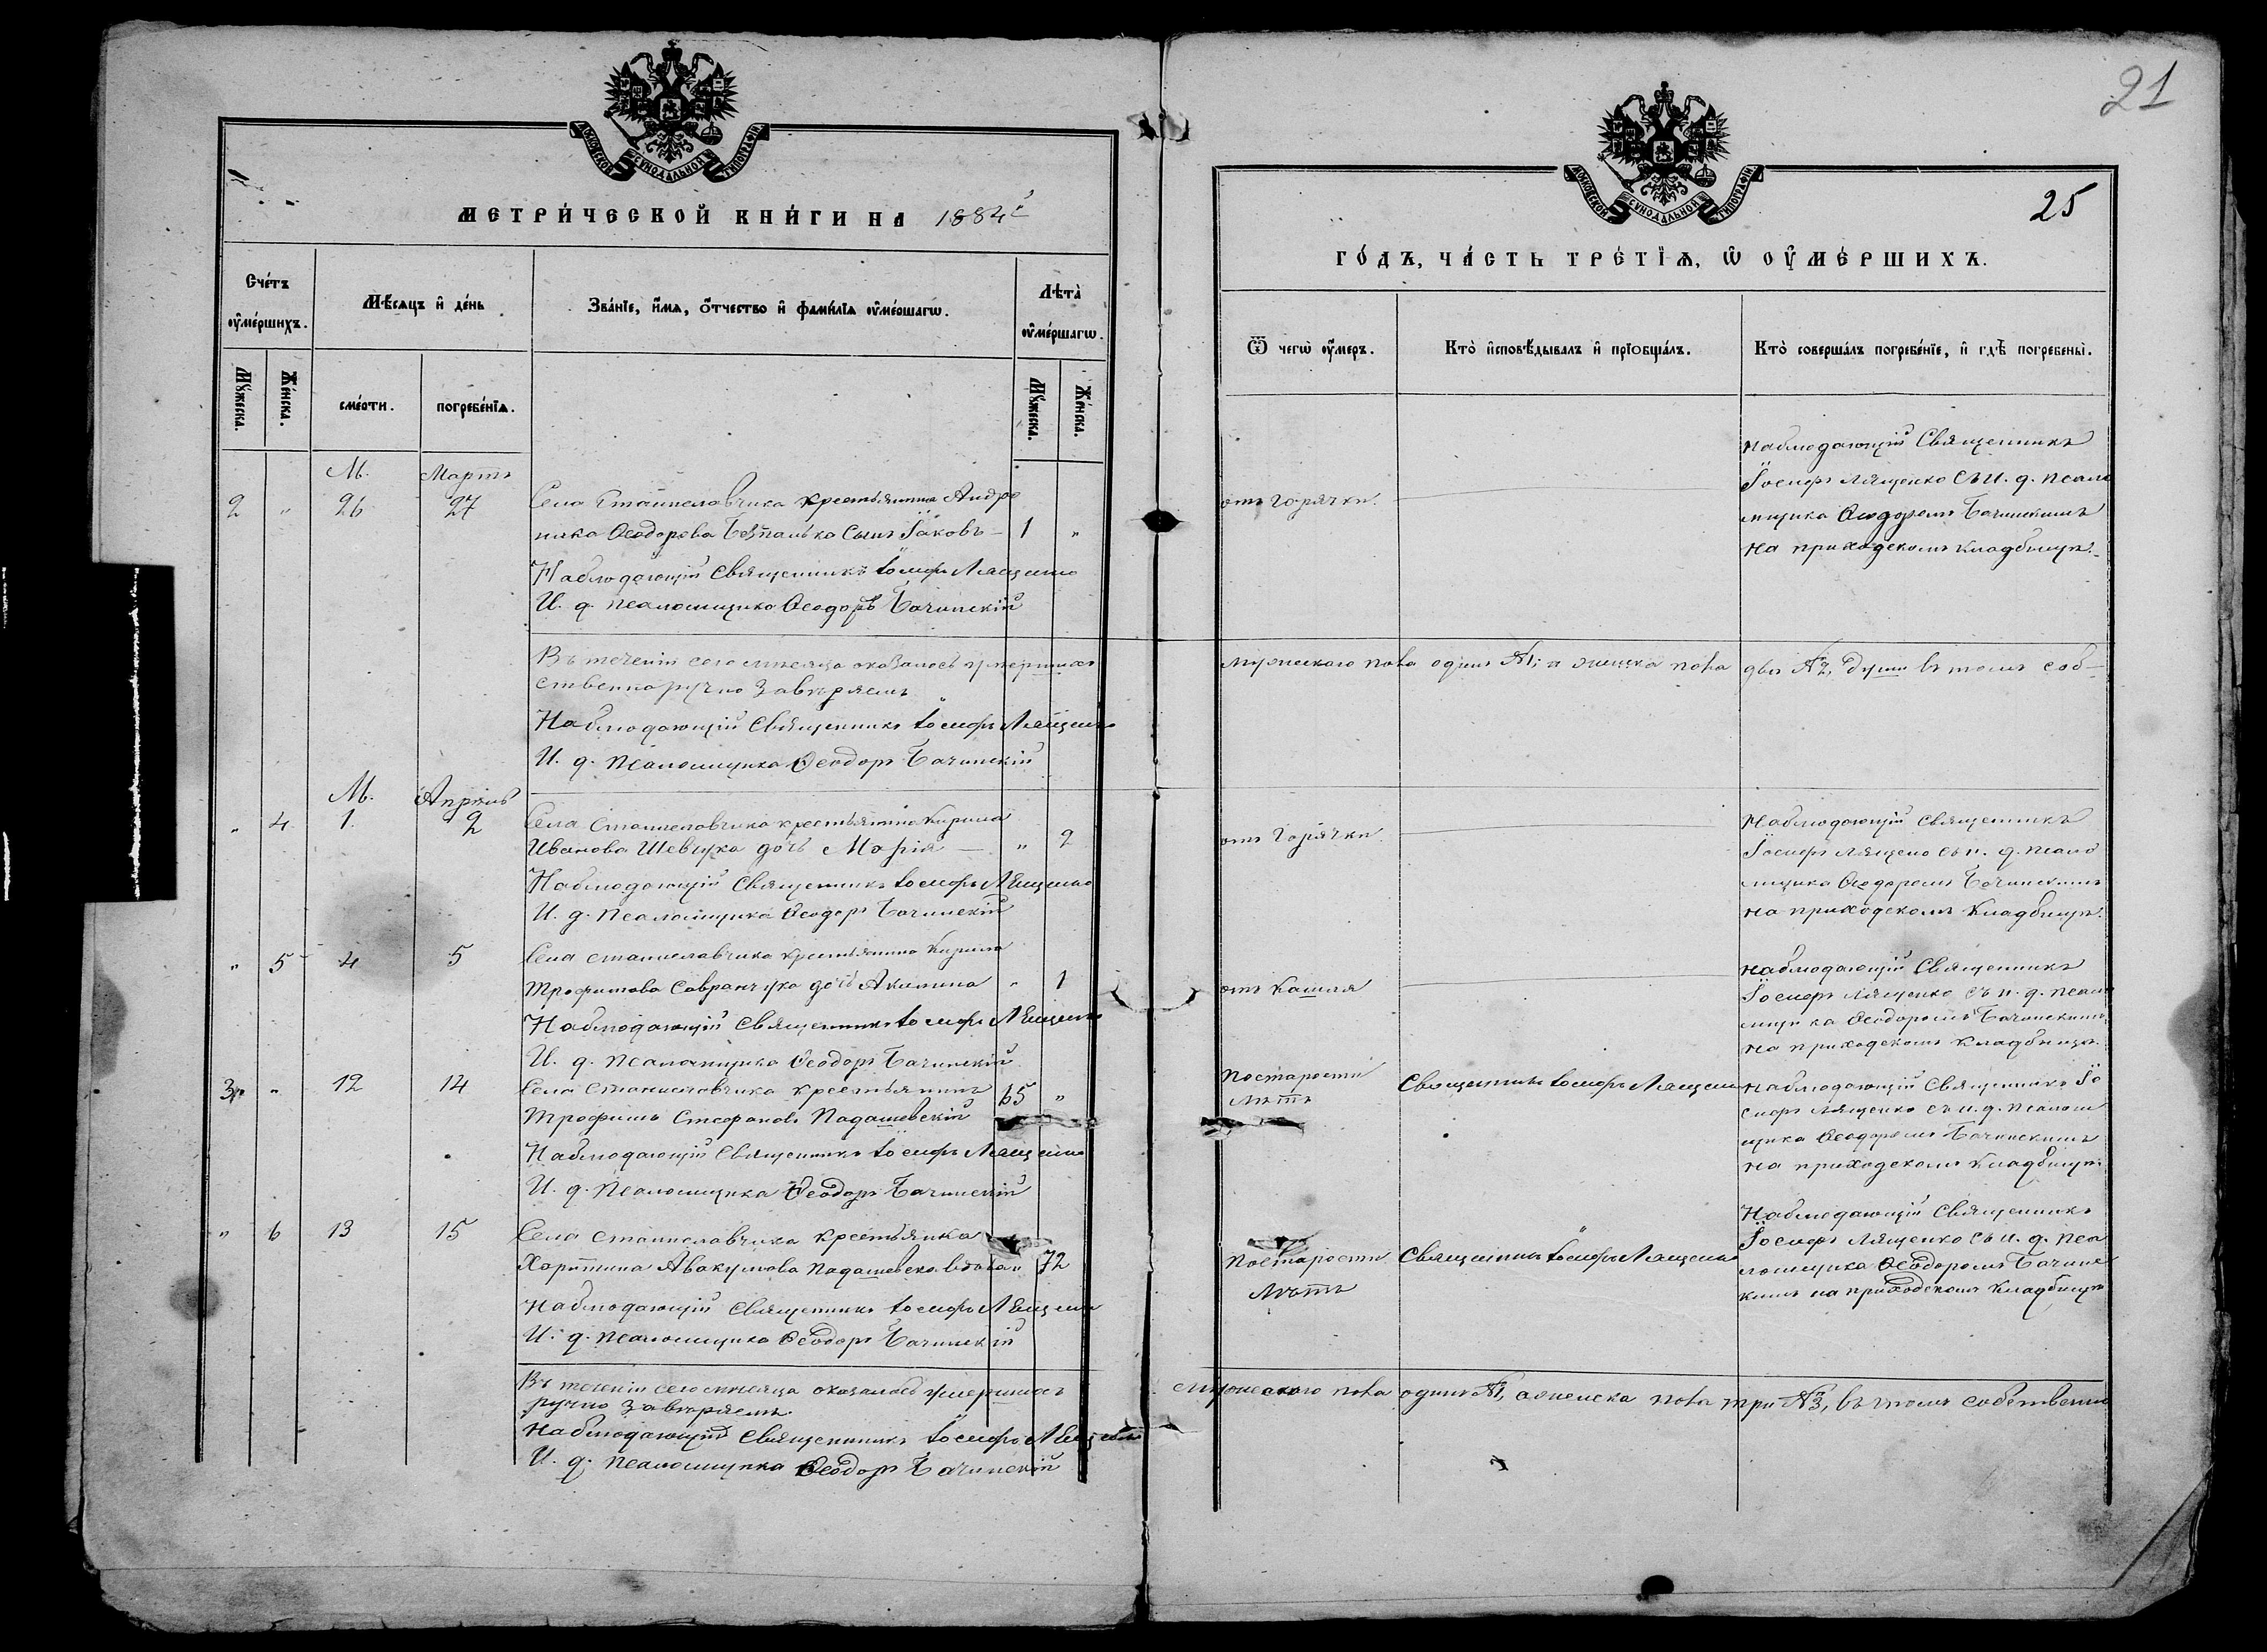 21
МОСКОВСКОЙ СѴНОДАЛЬНОЙ ТИПОГРАФІИ
МЕТРИ́ЧЕСКОЙ КНИ́ГИ НА 1884й
Сче́тъ ᲂу҆ме́ршихъ.
Мѣ́сяцъ и҆ де́нь
Зва́нїе, и҆́мѧ, ѻ҆́тчество и҆ фами́лїѧ ᲂу҆ме́ршагѡ.
Лѣта̀ ᲂу҆ме́ршагѡ.
Мꙋ́жеска.
Же́нска.
сме́рти.
погребе́нїѧ.
Мꙋ́жеска.
Же́нска.
М. Мартъ
2 " 26 27 Села Станиславчика крестьянина Андро
ника Ѳеодорова Безпалько сынъ Іаковъ — 1 "
Наблюдающій Священникъ Іосифъ Лященко
И. д. псаломщика Ѳеодоръ Бачинскій
Въ теченіи сего мѣсяца оказалось умершихъ
ственноручно завѣряемъ
Наблюдающій Священникъ Іосифъ Лященко
И. д. псаломщика Ѳеодоръ Бачинскій
М. Апрѣль
" 4 1. 2 Села Станиславчика крестьянина Кирила
Иванова Шевчука дочь Марія — " 2
Наблюдающій Священникъ Іосифъ Лященко
И. д. псаломщика Ѳеодоръ Бачинскій
" 5 4 5 Села Станиславчика крестьянина Кирила
Трофимова Савранчука дочь Акилина " 1
Наблюдающій Священникъ Іосифъ Лященко
И. д. псаломщика Ѳеодоръ Бачинскій
3 " 12 14 Села Станиславчика крестьянинъ 65 "
Трофимъ Стефановъ Падашевскій
Наблюдающій Священникъ Іосифъ Лященко
И. д. псаломщика Ѳеодоръ Бачинскій
" 6 13 15 Села Станиславчика крестьянка
Харитина Авакумова Падашевска вдова " 72
Наблюдающій Священникъ Іосифъ Лященко
И. д. псаломщика Ѳеодоръ Бачинскій
Въ теченіи сего мѣсяца оказалось умершихъ
ручно завѣряемъ.
Наблюдающій Священникъ Іосифъ Лященко
И. д. псаломщика Ѳеодоръ Бачинскій
МОСКОВСКОЙ СѴНОДАЛЬНОЙ ТИПОГРАФІИ
25
ГО́ДЪ, ЧА́СТЬ ТРЕ́ТЇѦ, Ѡ҆ ОУ҆МЕ́РШИХЪ.
Ѿ чегѡ̀ ᲂу҆́меръ.
Кто̀ и҆сповѣ́дывалъ и҆ прїѻбща́лъ.
Кто̀ соверша́лъ погребе́нїе, и҆ гдѣ̀ погребены̀.
отъ горячки.
Наблюдающій Священникъ
Іосифъ Лященко съ и. д. псало
мщика Ѳеодоромъ Бачинскимъ
на приходскомъ кладбищѣ.
мужескаго пола одинъ №1, а женска пола два №2, души въ томъ соб–
отъ горячки.
Наблюдающій Священникъ
Іосифъ Лященко съ и. д. псало
мщика Ѳеодоромъ Бачинскимъ
на приходскомъ кладбищѣ.
отъ кашля
Наблюдающій Священникъ
Іосифъ Лященко съ и. д. псало
мщика Ѳеодоромъ Бачинскимъ
на приходскомъ кладбищѣ.
По старости
лѣтъ
Священникъ Іосифъ Лященко
Наблюдающій Священникъ Іо
сифъ Лященко съ и. д. псалом
щика Ѳеодоромъ Бачинскимъ
на приходскомъ кладбищѣ.
По старости
лѣтъ
Священникъ Іосифъ Лященко
Наблюдающій Священникъ
Іосифъ Лященко съ и. д. пса
ломщика Ѳеодоромъ Бачинс
кимъ на приходскомъ кладбищѣ
мужескаго пола одинъ №1, а женска пола три №3, въ томъ собственно